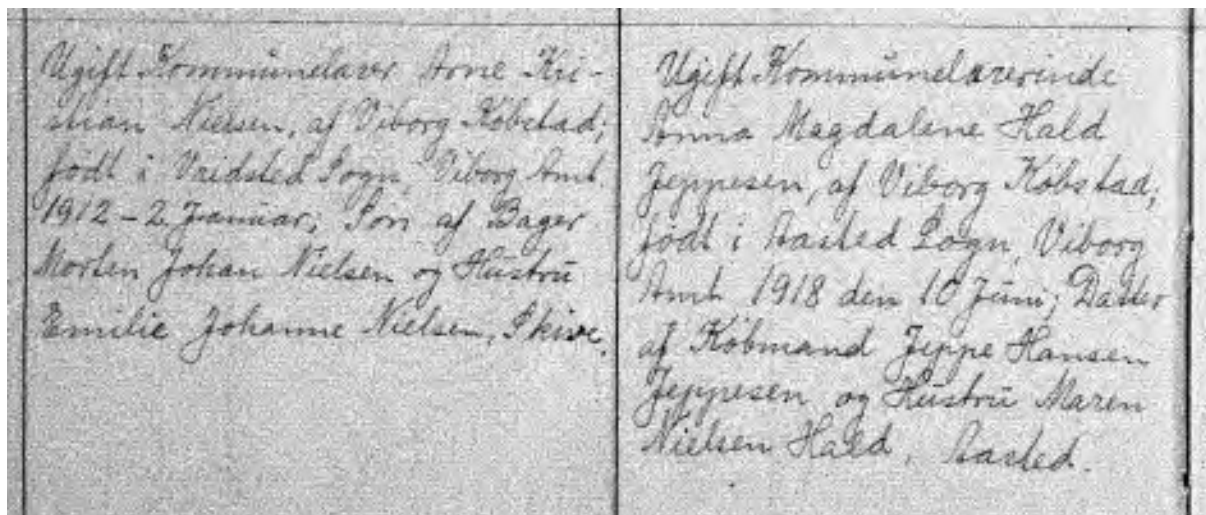 Ugift Kommunelærer Arne Kri-
stian Nielsen, af Viborg Købstad;
født i Vridsted Sogn, Viborg Amt.
1912 - 2. Januar; Søn af Bager
Morten Johan Nielsen og Hustru
Emilie Johanne Nielsen, Skive.
Ugift Kommunelærerinde
Anna Magdalene Hald
Jeppesen, af Viborg Købstad;
født i Aasted Sogn, Viborg
Amt 1918 den 10 Juni; Datter
af Købmand Jeppe Hansen
Jeppesen og Hustru Maren
Nielsen Hald, Aasted.